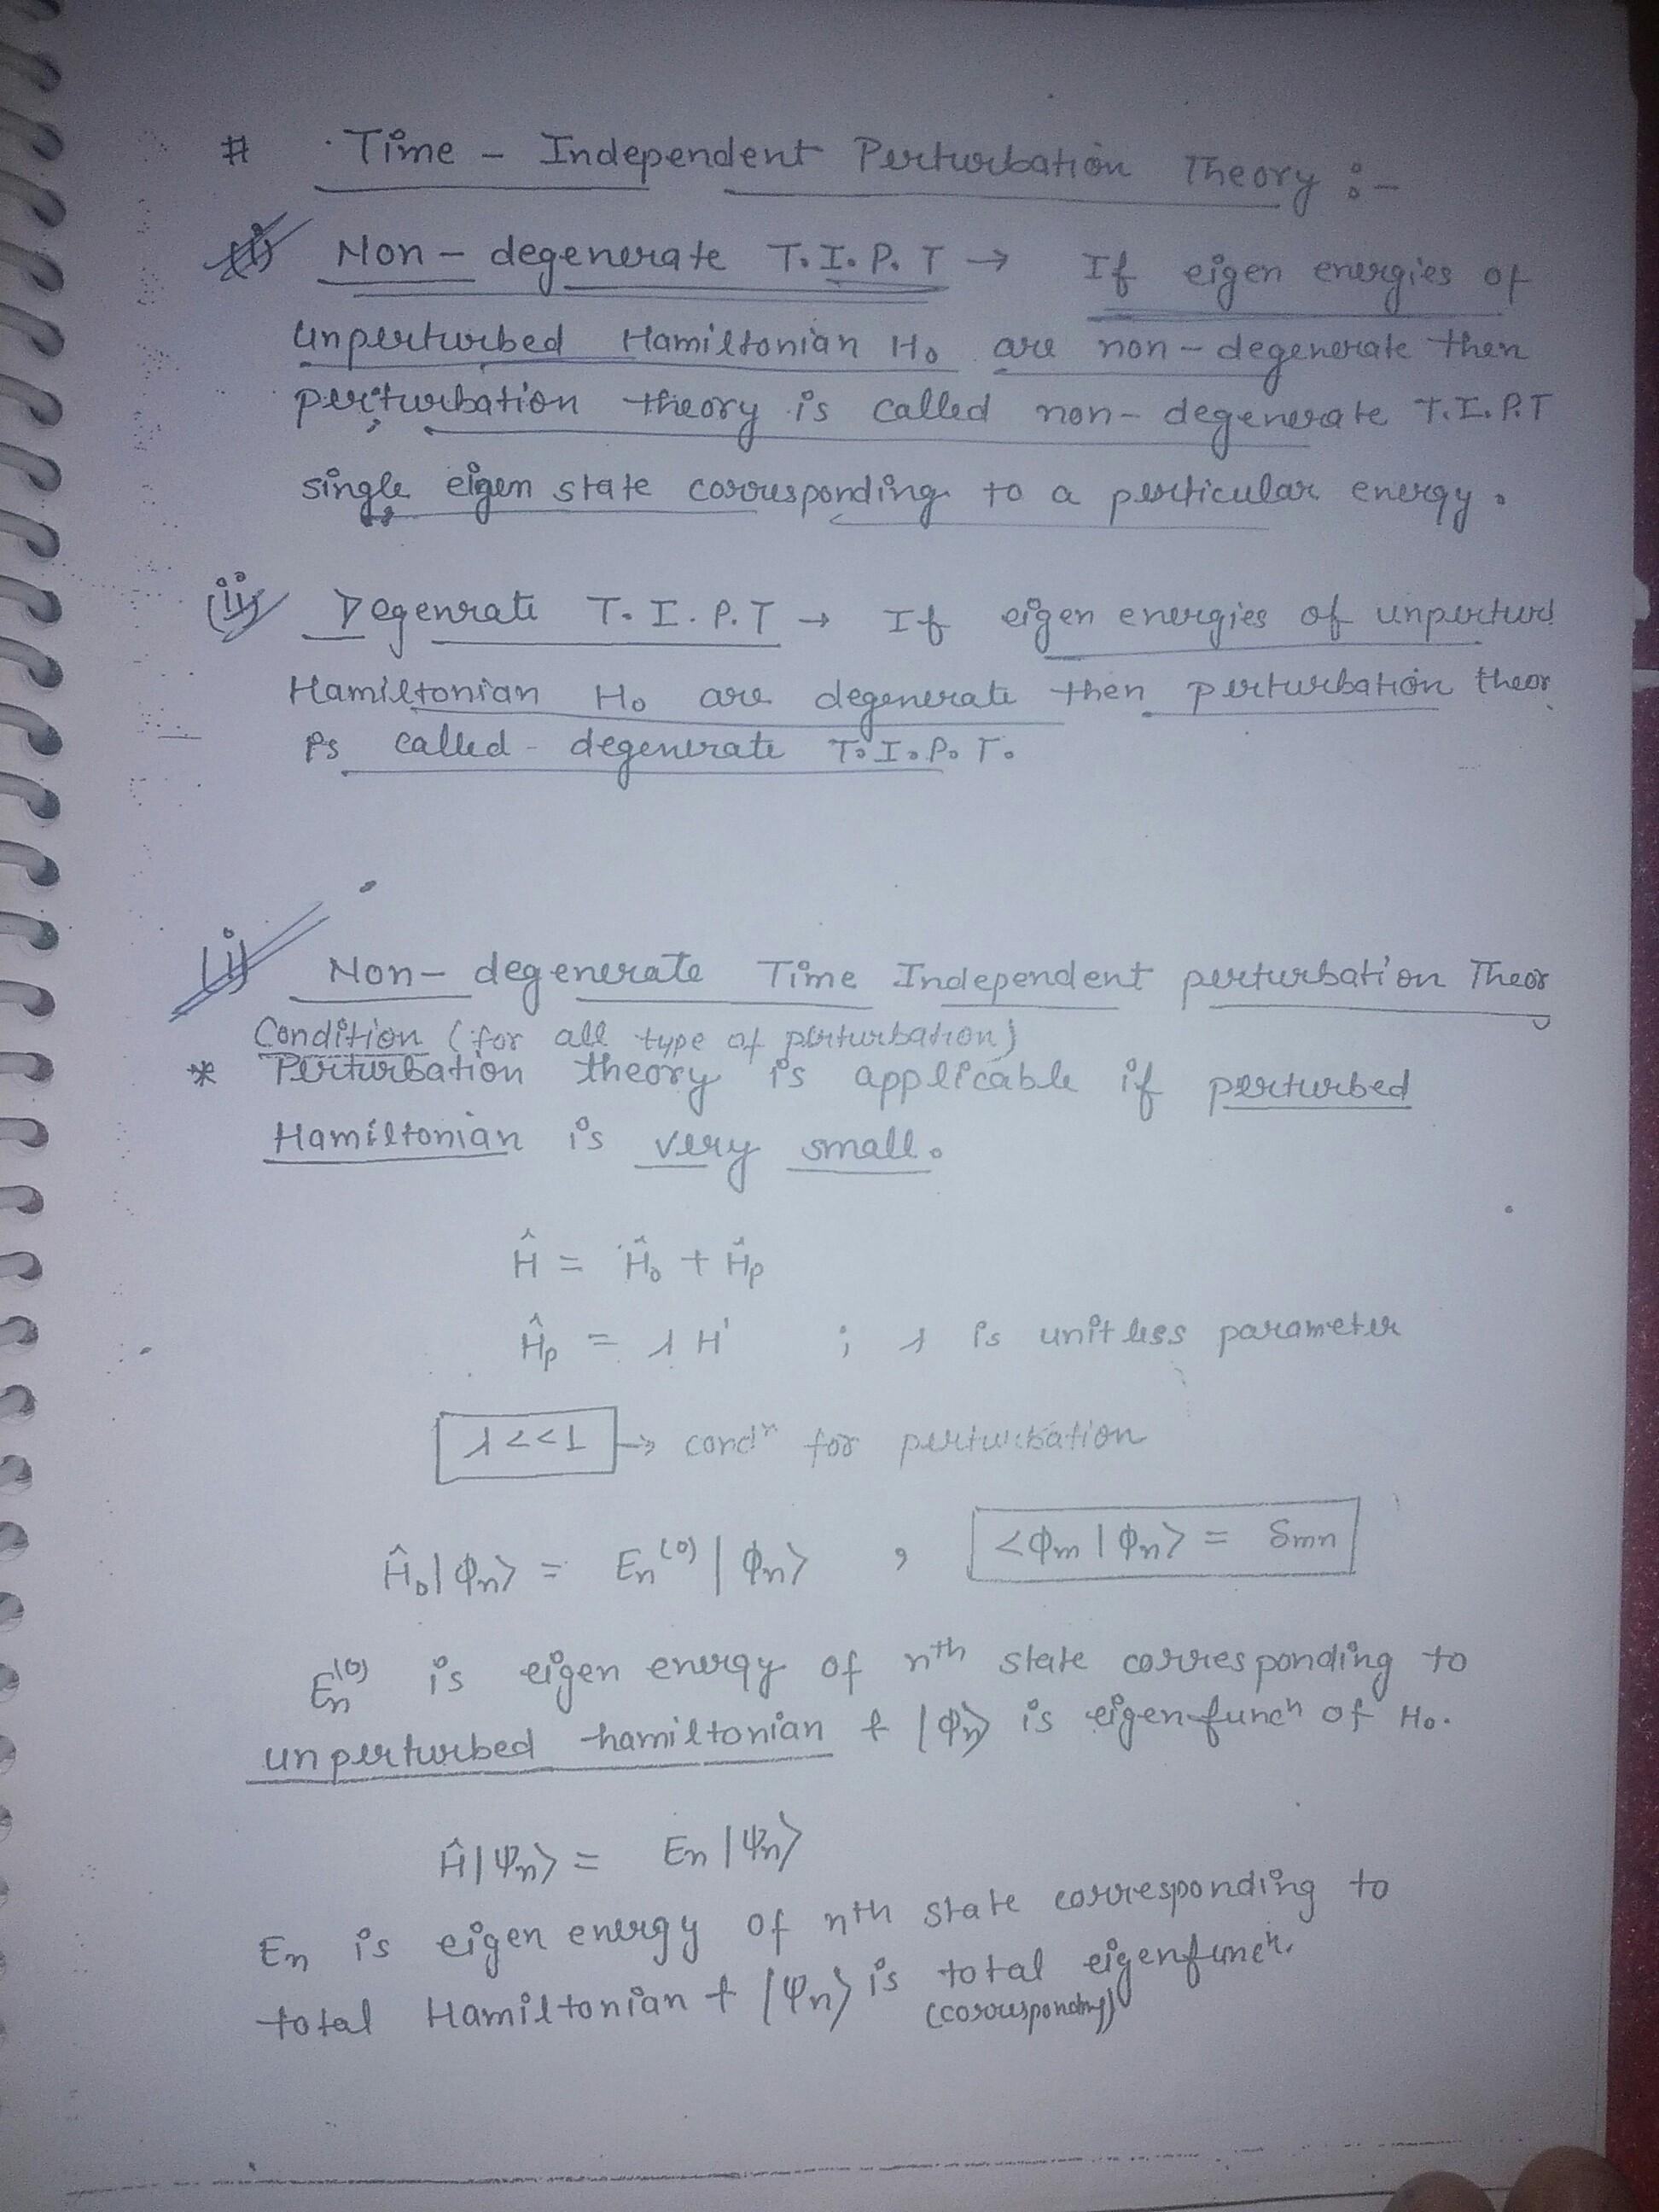 # Time - Independent Perturbation Theory :-
(i) Non - degenerate T.I.P.T → If eigen energies of
unperturbed Hamiltonian H₀ are non - degenerate then
perturbation theory is called non - degenerate T.I.P.T
single eigen state corresponding to a perticular energy.
(ii) Degenrate T.I.P.T → If eigen energies of unperturb
Hamiltonian H₀ are degenerate then perturbation theor
is called - degenerate T.I.P.T.
(i) Non - degenerate Time Independent perturbation Theory
Condition (for all type of perturbation)
* Perturbation theory is applicable if perturbed
Hamiltonian is very small.
Ĥ = Ĥ₀ + Ĥp
Ĥp = λ H' ; λ is unit less parameter
λ << 1 → condⁿ for perturbation
Ĥ₀|ϕn⟩ = En⁽⁰⁾ |ϕn⟩ , <ϕm|ϕn⟩ = δmn
En⁽⁰⁾ is eigen energy of nth state corresponding to
unperturbed hamiltonian & |ϕn⟩ is eigenfuncⁿ of H₀.
Ĥ|Ψn⟩ = En |Ψn⟩
En is eigen energy of nth state corresponding to
total Hamiltonian & |Ψn⟩ is total eigenfuncⁿ.
(corresponding)